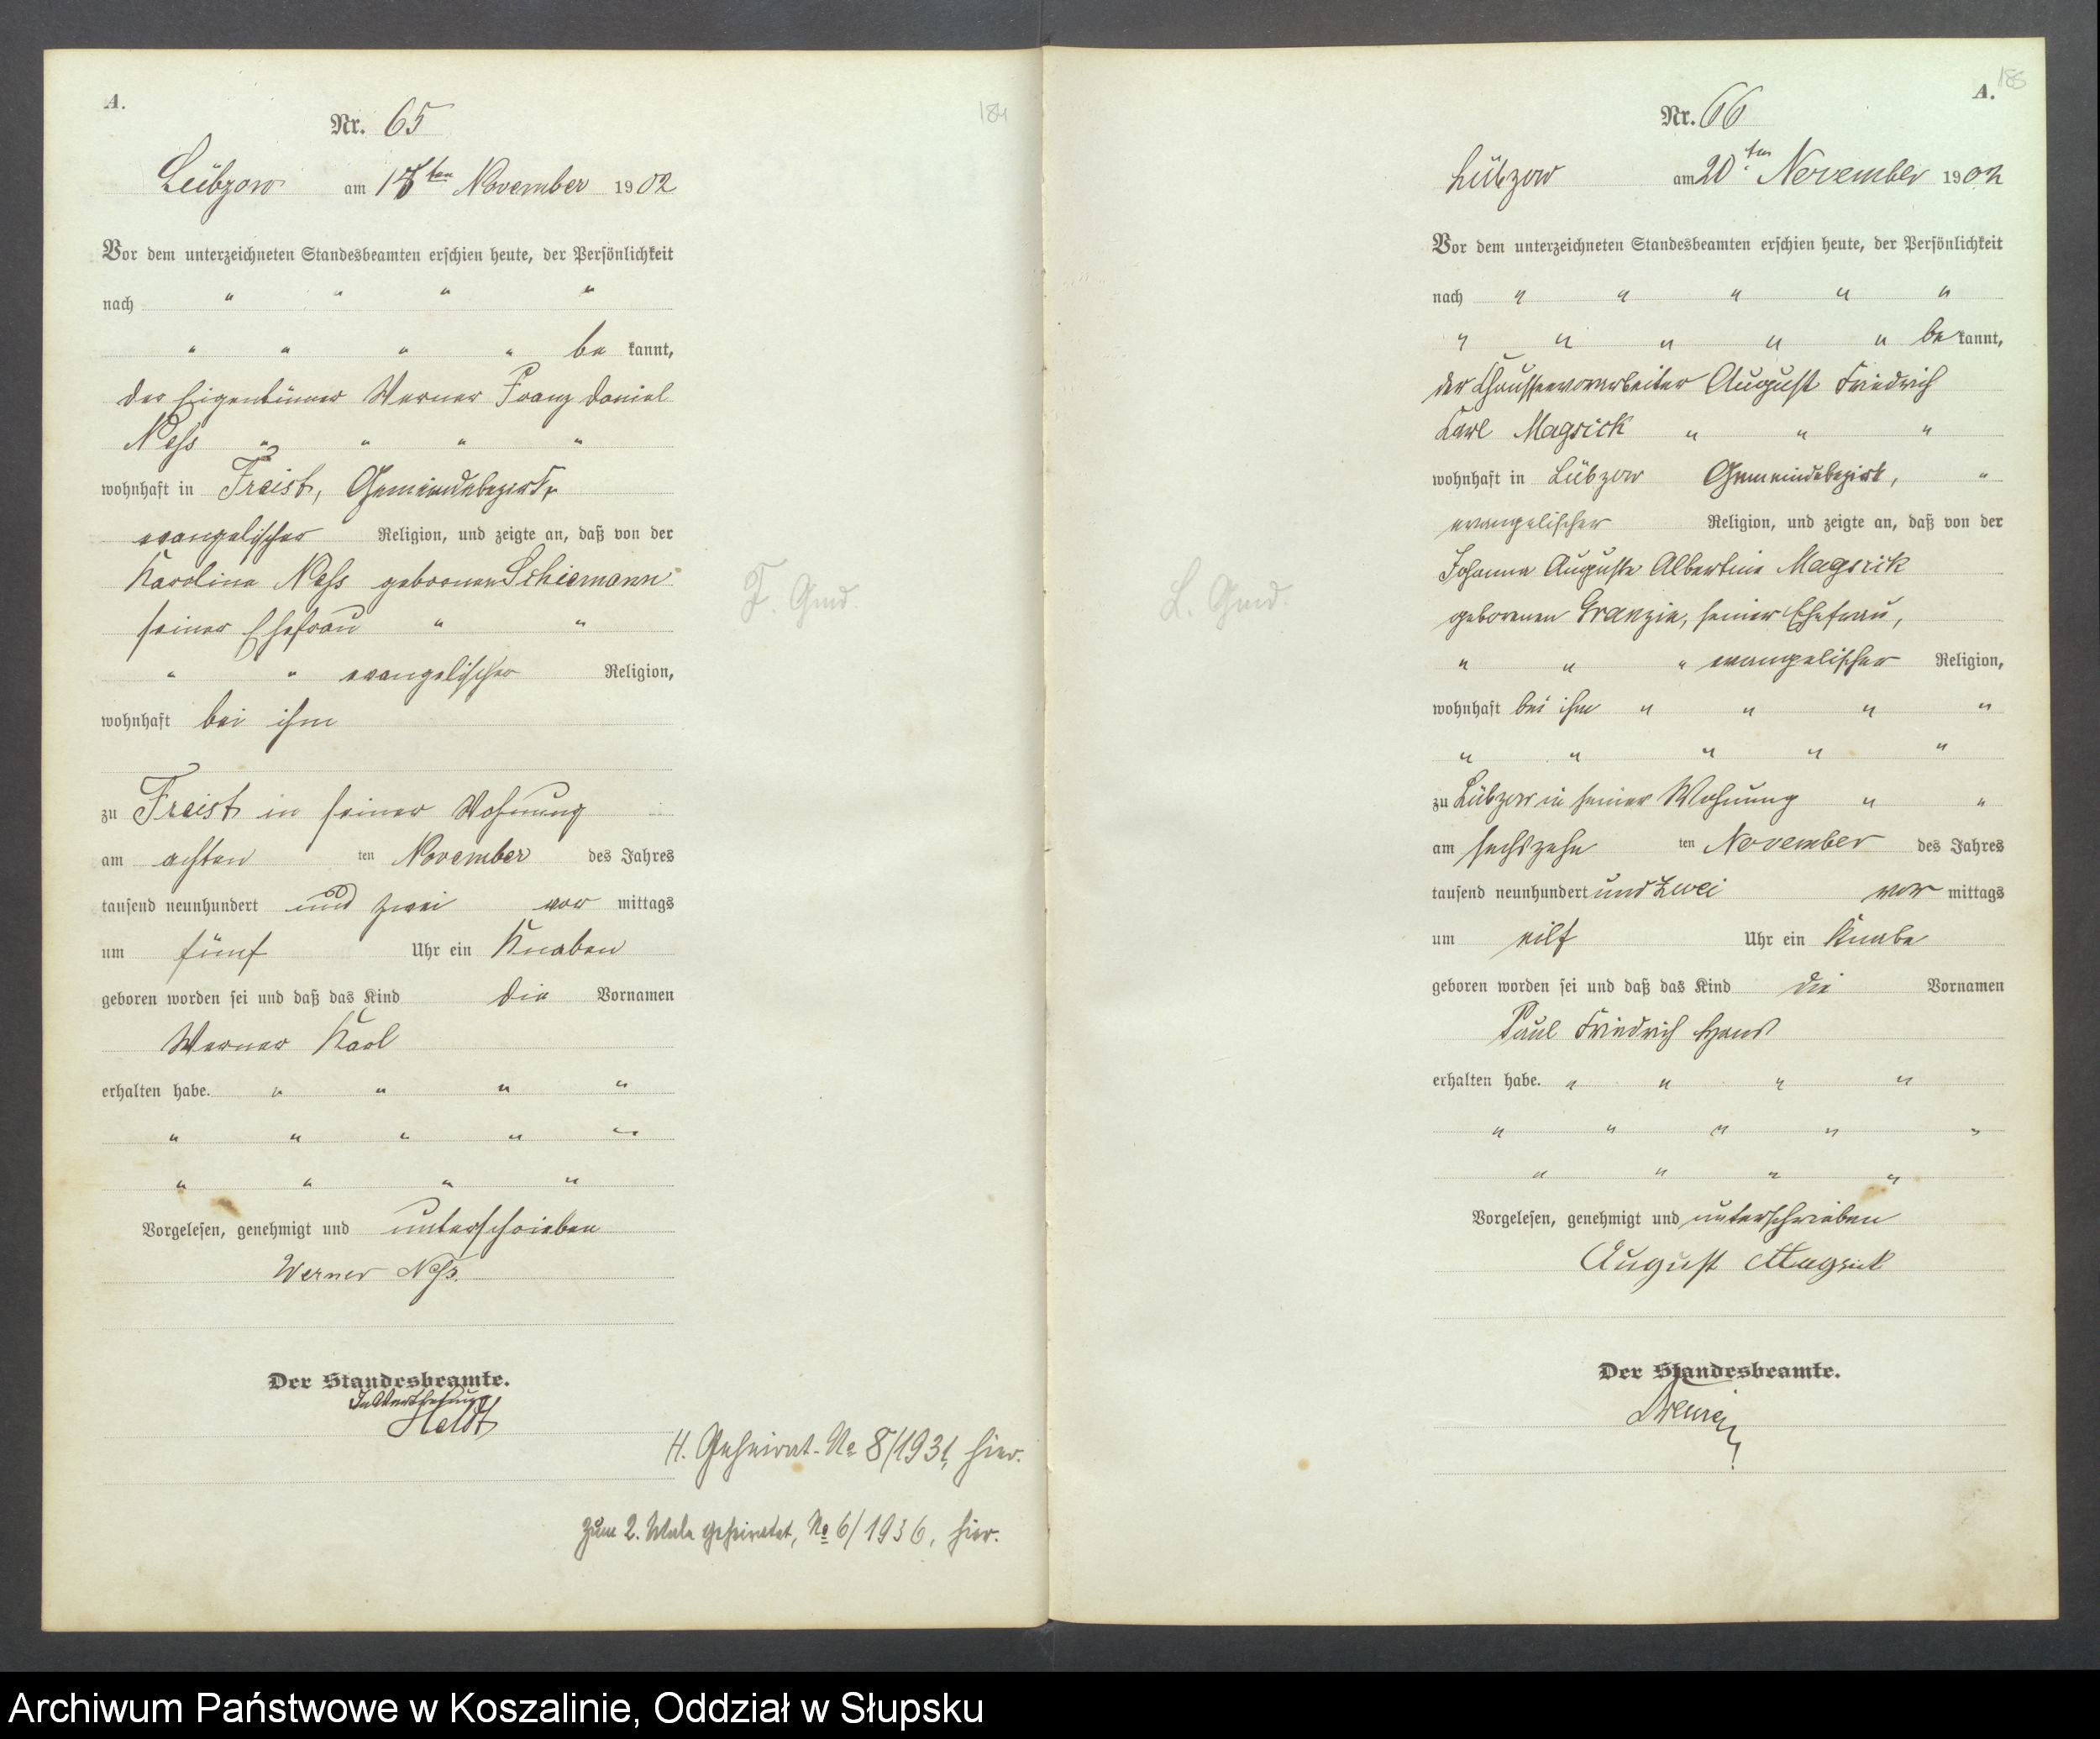 A.
184
Nr. 65
Lübzow am 13ten November 1902
Vor dem unterzeichneten Standesbeamten erschien heute, der Persönlichkeit
nach " " " "
" " " " be kannt,
der Eigentümer Werner Franz Daniel
Ness " " " "
wohnhaft in Freist, Gemeindebezirk,
evangelischer Religion, und zeigte an, daß von der
Karoline Ness geborenen Schiemann
seiner Ehefrau " "
" " evangelischer Religion,
wohnhaft bei ihm
zu Freist in seiner Wohnung
am achten ten November des Jahres
tausend neunhundert und zwei vor mittags
um fünf Uhr ein Knaben
geboren worden sei und daß das Kind die Vornamen
Werner Karl
erhalten habe. " " " "
" " " " "
" " " "
Vorgelesen, genehmigt und unterschrieben
Werner Ness.
Der Standesbeamte.
In Vertretung
Heldt
F. Gmd.
Geheirat. No 8/1931, hier.
Zum 2. Male geheiratet, No 6/1936, hier.
A.
185
Nr. 66
Lübzow am 20ten November 1902
Vor dem unterzeichneten Standesbeamten erschien heute, der Persönlichkeit
nach " " " " "
" " " " " be kannt,
der Chausseevorarbeiter August Friedrich
Karl Magsick " " "
wohnhaft in Lübzow Gemeindebezirk, "
evangelischer Religion, und zeigte an, daß von der
Johanna Auguste Albertine Magsick
geborenen Granzin, seiner Ehefrau,
" " " evangelischer Religion,
wohnhaft bei ihm " " " "
" " " " "
zu Lübzow in seiner Wohnung " "
am sechszehn ten November des Jahres
tausend neunhundert und zwei vor mittags
um eilf Uhr ein Knabe
geboren worden sei und daß das Kind die Vornamen
Paul Friedrich Hans
erhalten habe. " " " "
" " " " "
" " " "
Vorgelesen, genehmigt und unterschrieben
August Magsick
Der Standesbeamte.
L. Gmd.
Archiwum Państwowe w Koszalinie, Oddział w Słupsku